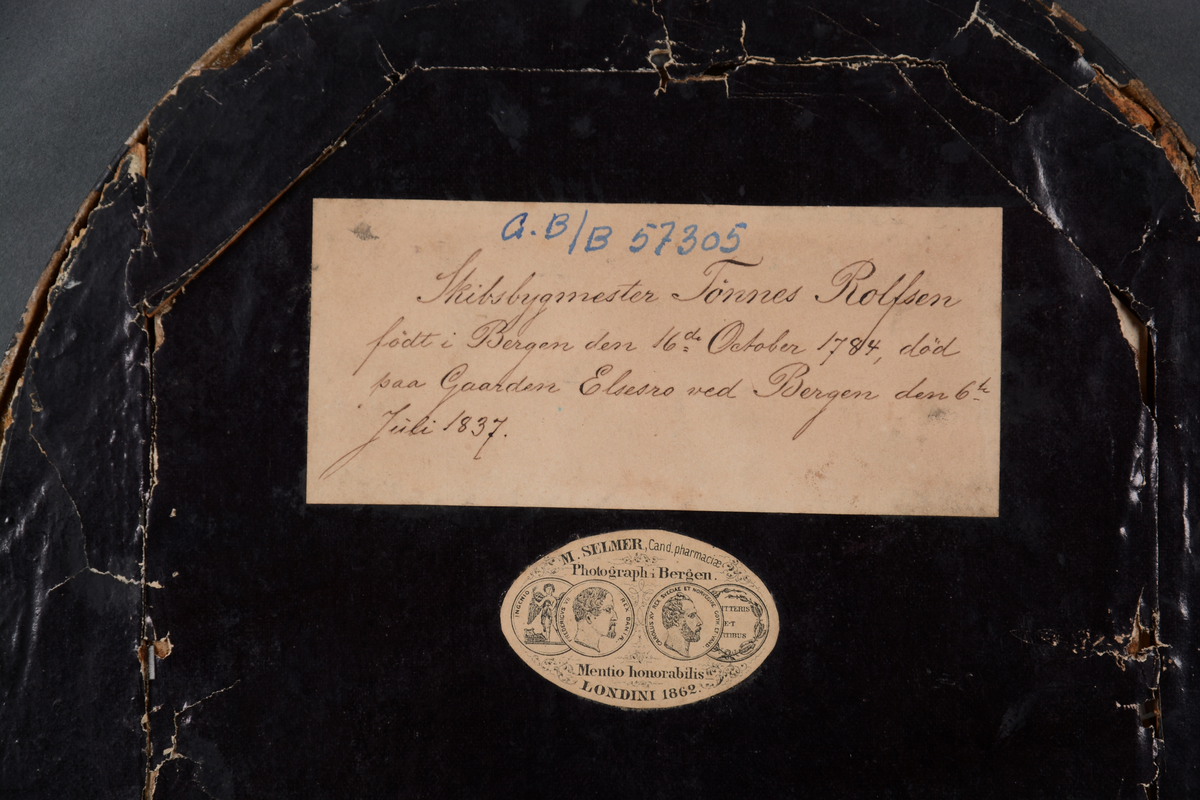 G.B/B 57305
Skibsbygmester Tönnes Rolfsen
født i Bergen den 16de October 1784, død
paa Gaarden Elsesro ved Bergen den 6te
Juli 1837.
M. SELMER, Cand. pharmaciæ
Photograph i Bergen.
INGENIO
FREDERICUS VII REX DANIÆ
CAROLUS XV REX SVECIAE ET NORVEGIAE GOTH. ET VAND.
ITTERIS
ET
TIBUS
Mentio honorabilis
LONDINI 1862.